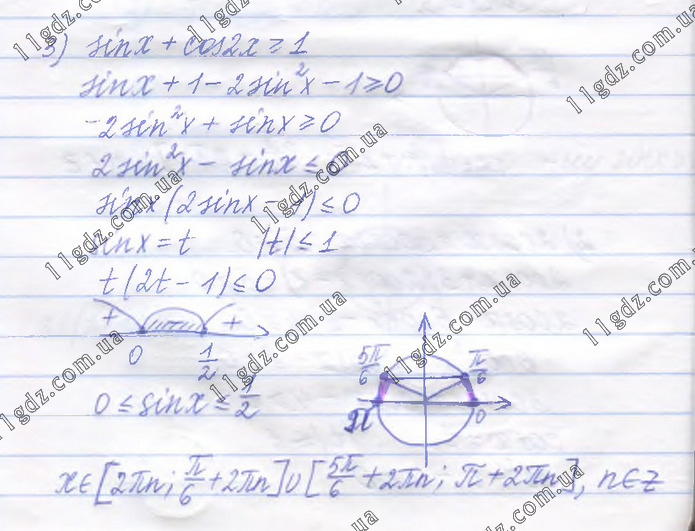 3) sinx + cos2x ≥ 1
sinx + 1 - 2sin²x - 1 ≥ 0
-2sin²x + sinx ≥ 0
2sin²x - sinx ≤ 0
sinx(2sinx - 1) ≤ 0
sinx = t |t| ≤ 1
t(2t - 1) ≤ 0
+ +
0 1/2
0 ≤ sinx ≤ 1/2
5π/6 π/6
π 0
x∈[2πn; π/6 + 2πn]∪[5π/6 + 2πn; π + 2πn], n∈Z
11gdz.com.ua
11gdz.com.ua
11gdz.com.ua
11gdz.com.ua
11gdz.com.ua
11gdz.com.ua
11gdz.com.ua
11gdz.com.ua
11gdz.com.ua
11gdz.com.ua